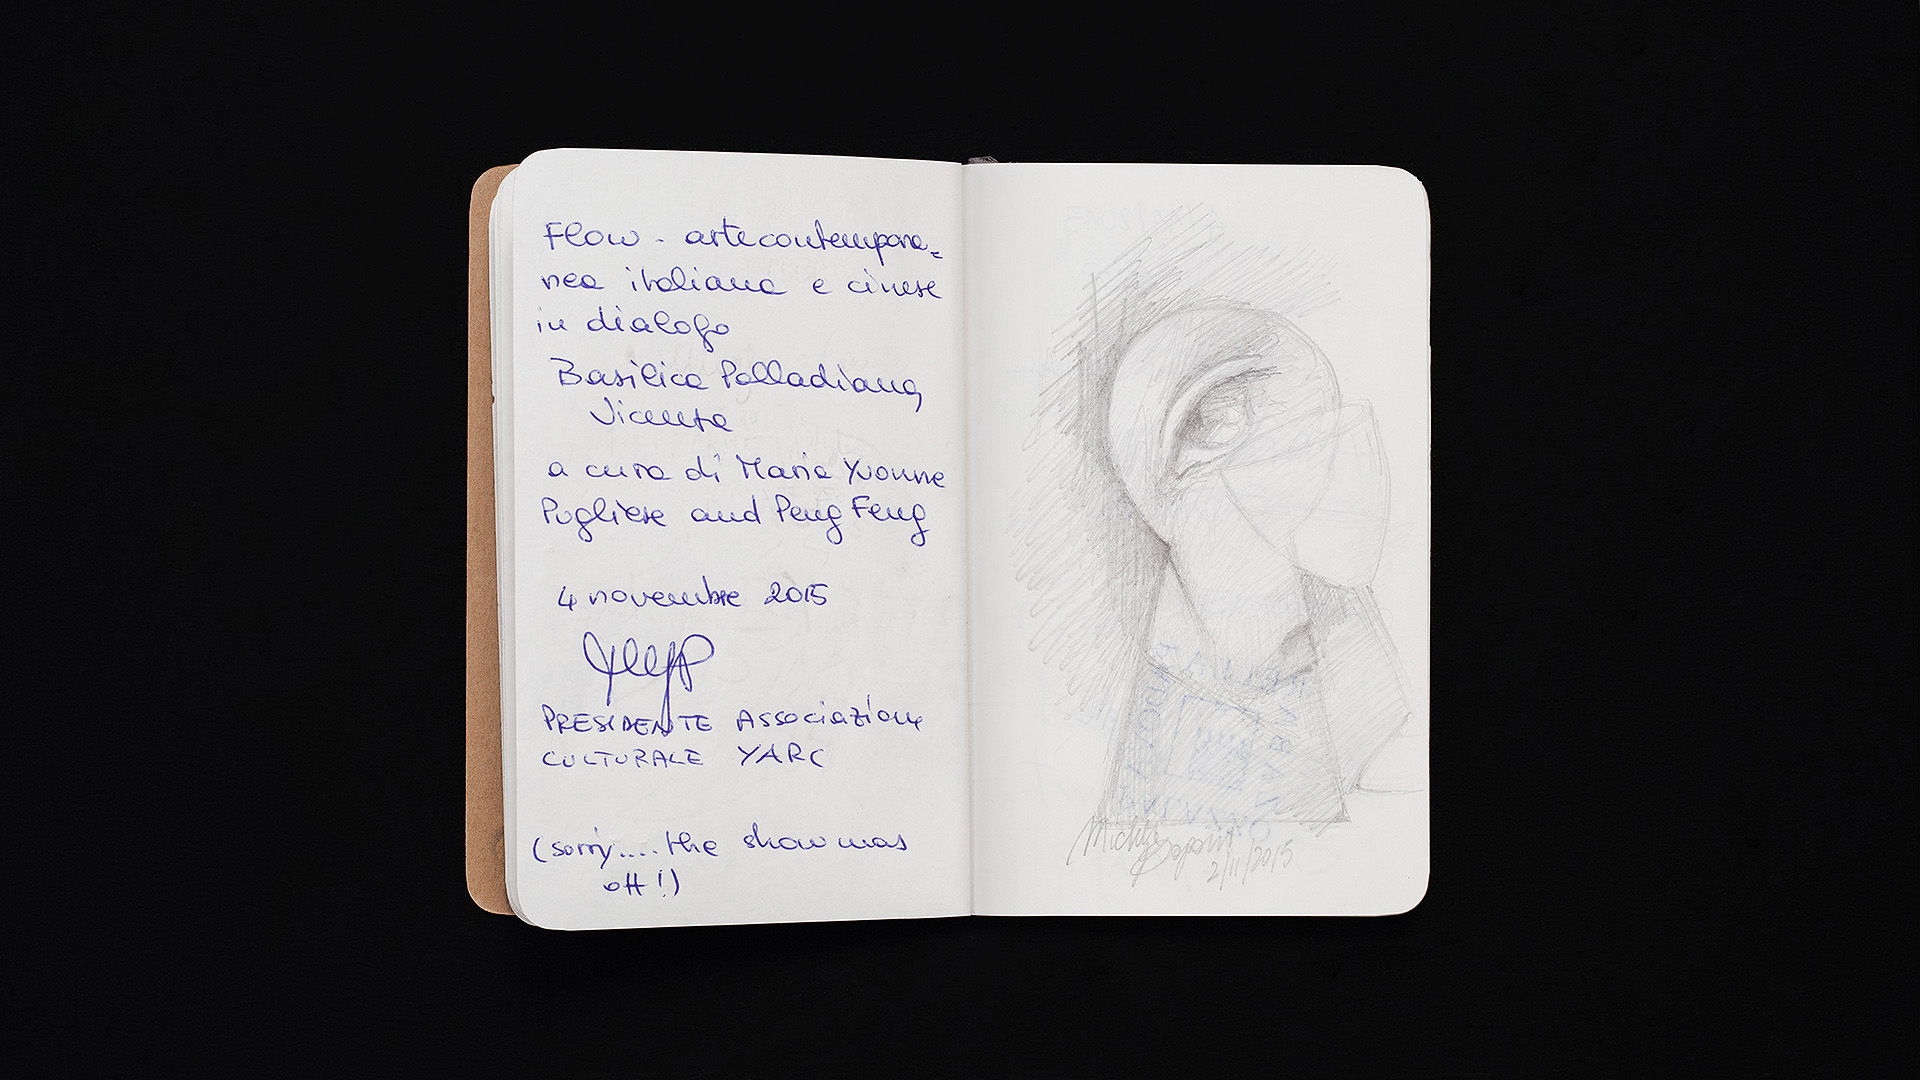 Flow - arte contempora=
nea italiana e cinese
in dialogo
Basilica Palladiana,
Vicenza
a cura di Maria Yvonne
Pugliese and Peng Feng
4 novembre 2015
PRESIDENTE Associazione
CULTURALE YARC
(sorry.... the show was
off!)
2/11/2015